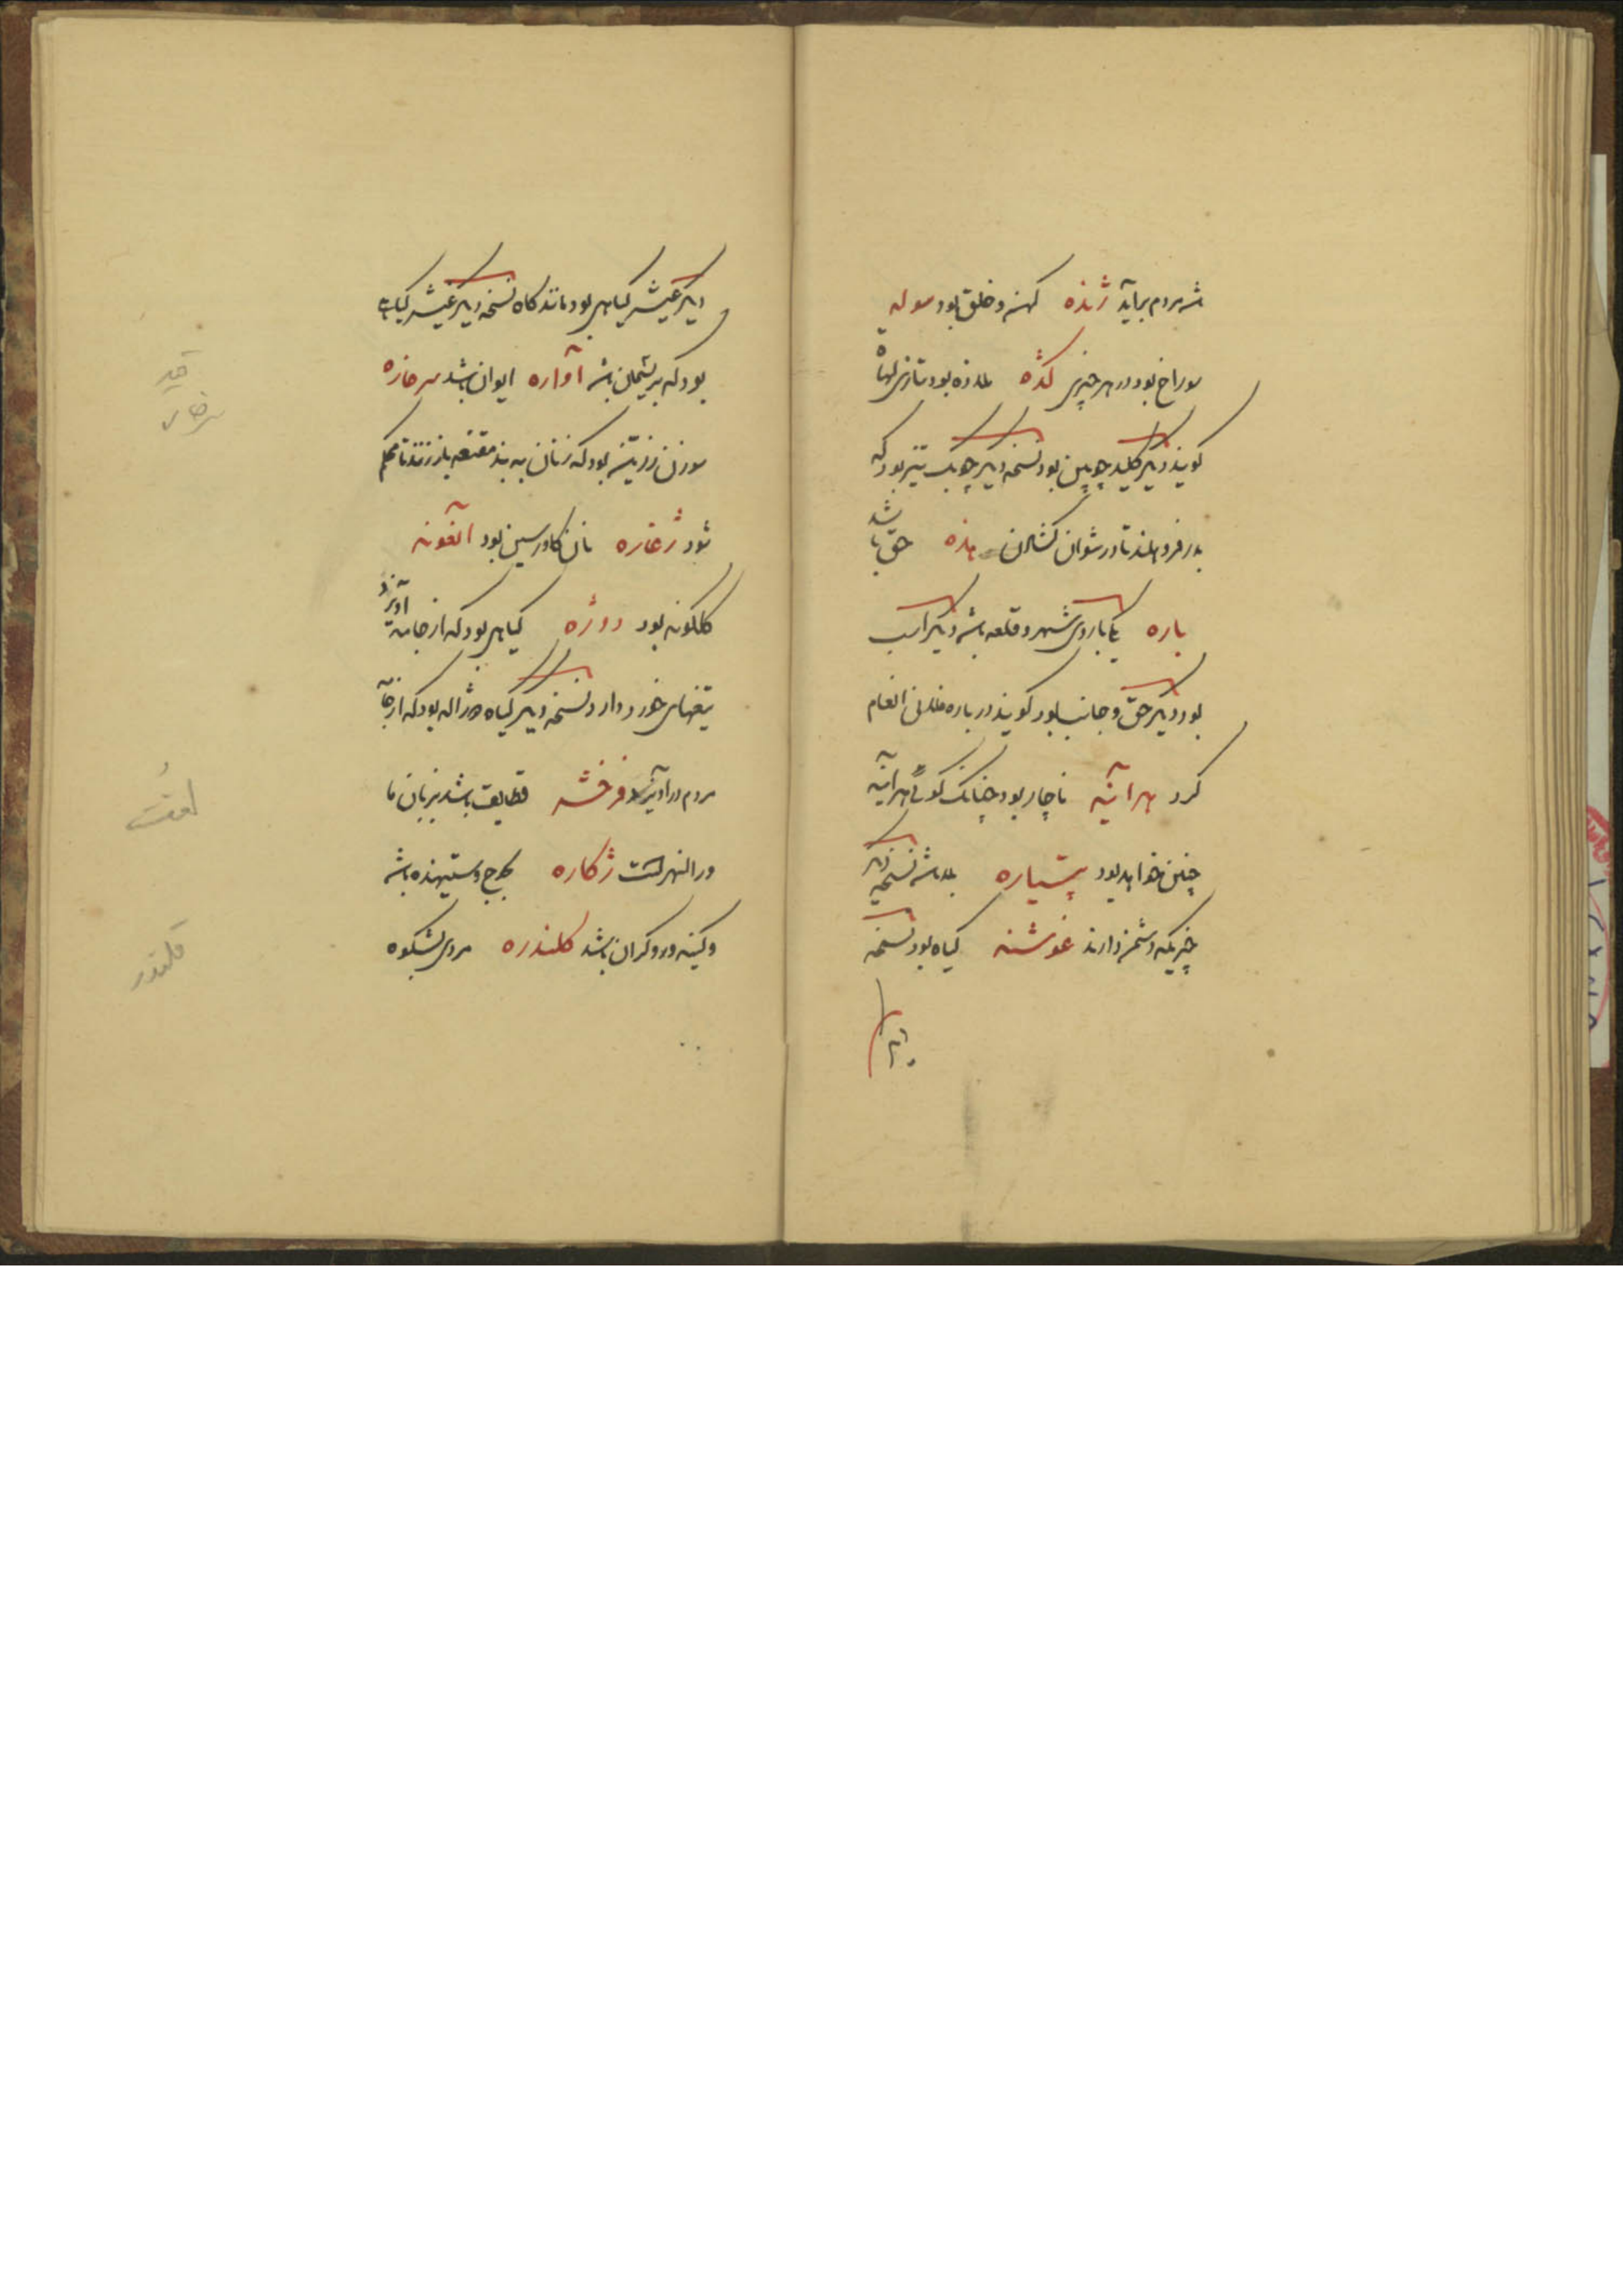 مردم برآید ژنده کهنه و خلق بود سوله
سوراخ بود در هر چیزی کده ملازه بود بتازی لهاة
گویند دیگر کلید چوبین بود نسخه دیگر چوبک تیز بود که
بدر فرو هلند تا در نتوان گشادن هده حق باشد
باره یکی باروی شهر و قلعه باشد دیگر اسب
بود دیگر حق و جانب بود گویند در باره فلانی انعام
کرد هرآینه ناچار بود چنانک گوئی هرآینه
چنین خواهد بود پتیاره بلا باشد نسخه دیگر
چیزیکه دشمن دارند غوشنه گیاه بود نسخه
دیگر
دیگر غیشه گیاهی بود مانند کاه نسخه دیگر غیشه گیاهی
بود که بریشمان باشد آواره ایوان باشد سرخاره
سوزن زرینه بود که زنان به بند مقنعه باز زنند تا محکم
شود ژغاره نان گاورسین بود آلغونه
گلگونه بود دوژه گیاهی بود که از جامه آویزد
تیغهای خورد دارد نسخه دیگر گیاه بود که از جامه
مردم در آویزد فرخشه قطایف باشد بزبان ما
ورالنهر لتت ژکاره لجوج و ستیهنده باشد
و کینه ور و گران باشد کلندره مردی بشکوه
لغت
قلندر